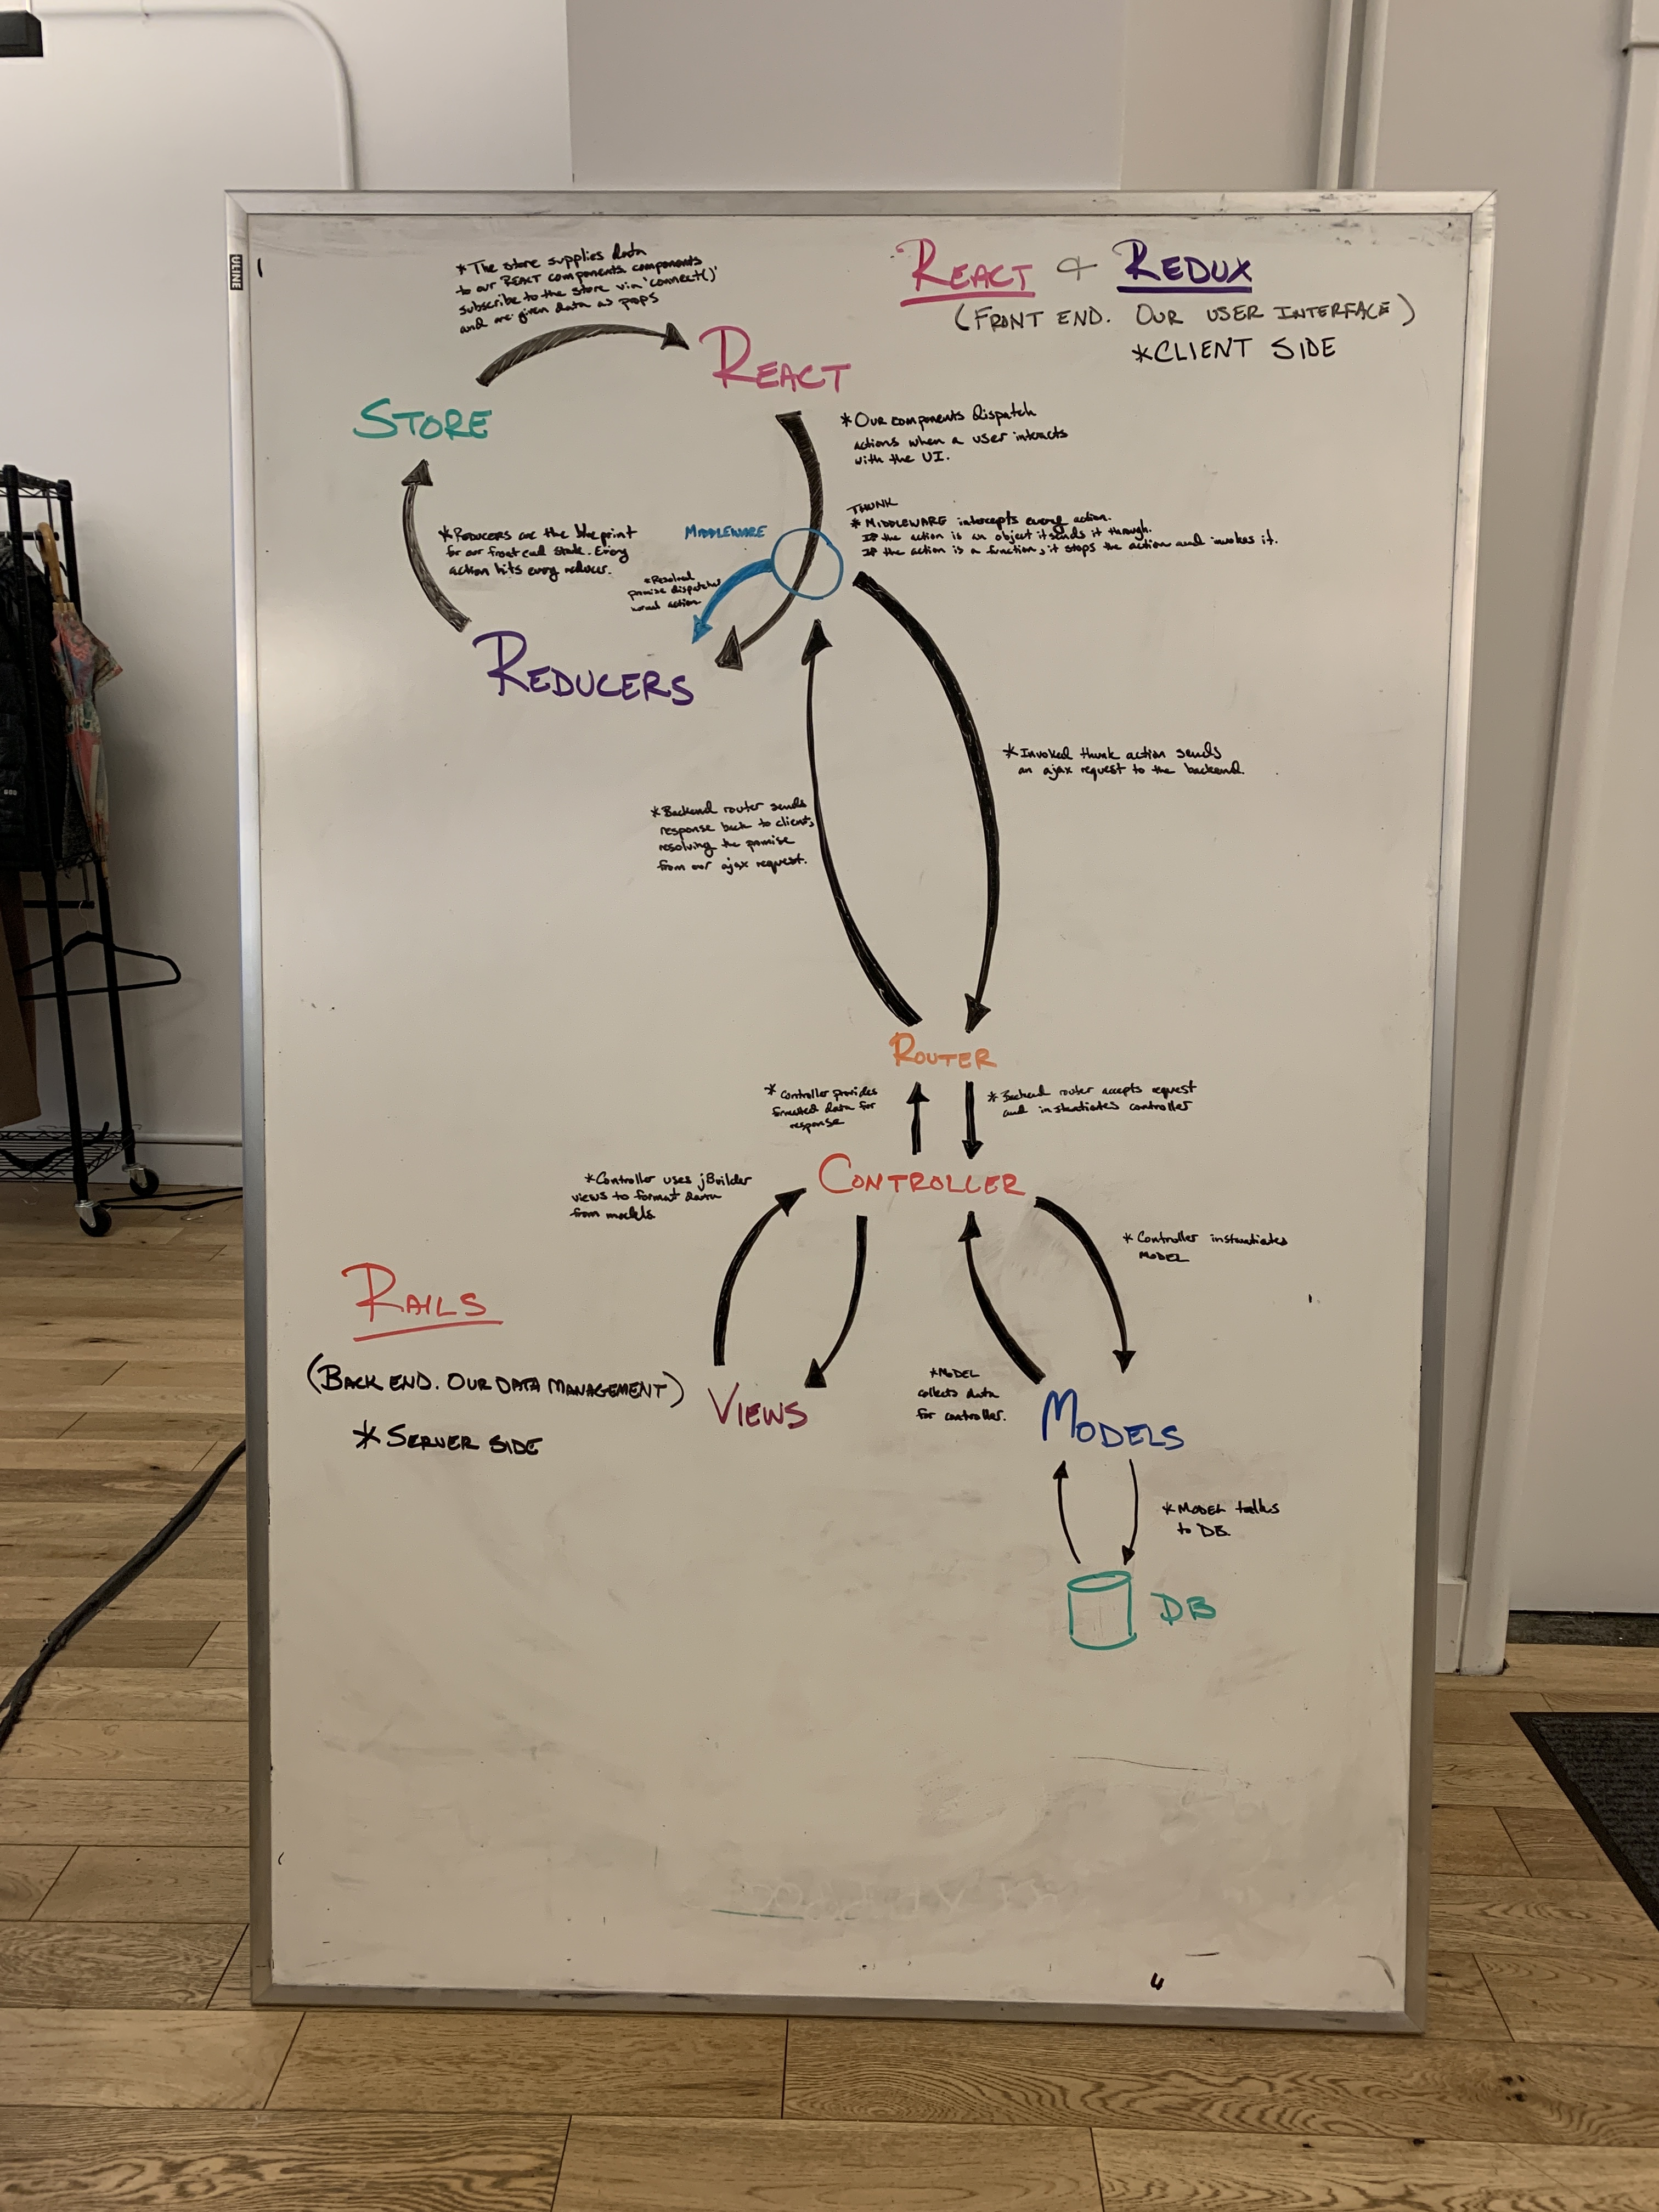 ULINE
*The store supplies data
to our REACT components. components
subscribe to the store via 'connect()'
and are given data as props
REACT & REDUX
(FRONT END. OUR USER INTERFACE)
*CLIENT SIDE
REACT
STORE
*Our components dispatch
actions when a user interacts
with the UI.
THUNK
* MIDDLEWARE intercepts every action.
If the action is an object it sends it through.
If the action is a function, it stops the action and invokes it.
MIDDLEWARE
*Reducers are the blueprint
for our front end state. Every
action hits every reducer.
*Resolved
promise dispatches
normal action
REDUCERS
*Invoked thunk action sends
an ajax request to the backend.
*Backend router sends
response back to client,
resolving the promise
from our ajax request.
ROUTER
*Controller provides
formatted data for
response
*Backend router accepts request
and instantiates controller
CONTROLLER
*Controller uses jBuilder
views to format data
from models.
*Controller instantiates
MODEL
RAILS
(BACK END. OUR DATA MANAGEMENT)
*SERVER SIDE
VIEWS
*MODEL
collects data
for controller.
MODELS
*MODEL talks
to DB.
DB